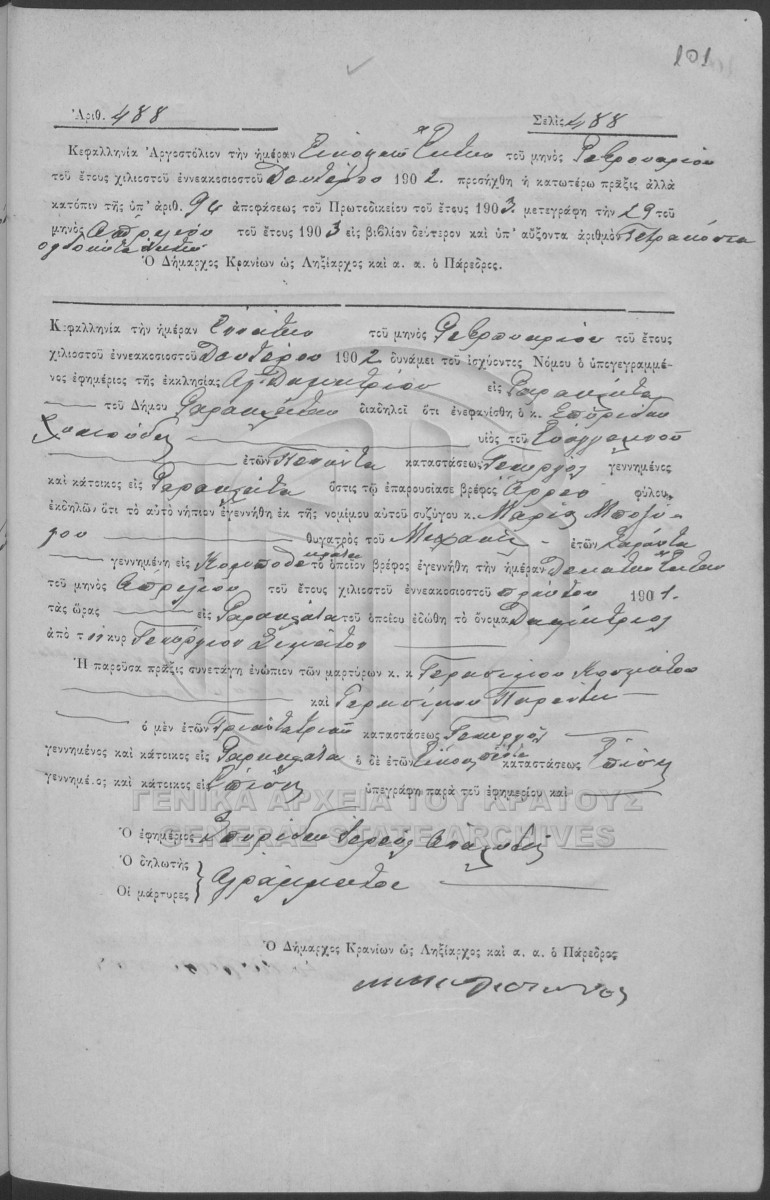 101
Ἀριθ. 488 Σελὶς 488
Κεφαλληνία Ἀργοστόλιον τὴν ἡμέραν Εἰκοστὴν Ἕκτην τοῦ μηνὸς Φεβρουαρίου
τοῦ ἔτους χιλιοστοῦ ἐννεακοσιοστοῦ Δευτέρου 1902. προσήχθη ἡ κατωτέρω πρᾶξις ἀλλὰ
κατόπιν τῆς ὑπ' ἀριθ. 94 ἀποφάσεως τοῦ Πρωτοδικείου τοῦ ἔτους 1903. μετεγράφη τὴν 29 τοῦ
μηνὸς Ἀπριλίου τοῦ ἔτους 1903 εἰς βιβλίον δεύτερον καὶ ὑπ' αὔξοντα ἀριθμὸν Τετρακόσια
ογδοήκοντα οκτώ
Ὁ Δήμαρχος Κρανίων ὡς Ληξίαρχος καὶ α. α. ὁ Πάρεδρος.
Κεφαλληνία τὴν ἡμέραν τοῦ μηνὸς Φεβρουαρίου τοῦ ἔτους
χιλιοστοῦ ἐννεακοσιοστοῦ Δευτέρου 1902 δυνάμει τοῦ ἰσχύοντος Νόμου ὁ ὑπογεγραμμέ-
νος ἐφημέριος τῆς ἐκκλησίας Αγ. Δημητρίου εἰς Φαρακλάτα
τοῦ Δήμου Φαρακλάτων διαδηλοῖ ὅτι ἐνεφανίσθη ὁ κ. Σπυρίδων
υἱὸς τοῦ Ευαγγελινού
ἐτῶν Πενήντα καταστάσεως Γεωργός γεννημένος
καὶ κάτοικος εἰς Φαρακλάτα ὅστις τῷ ἐπαρουσίασε βρέφος Άρρεν φύλου,
ἐκδηλῶν ὅτι τὸ αὐτὸ νήπιον ἐγεννήθη ἐκ τῆς νομίμου αὐτοῦ συζύγου κ. Μαρίας
θυγατρὸς τοῦ ἐτῶν Σαράντα
γεννημένη εἰς τὸ ὁποῖον βρέφος ἐγεννήθη τὴν ἡμέραν Δεκάτην Έκτην
τοῦ μηνὸς Απριλίου τοῦ ἔτους χιλιοστοῦ ἐννεακοσιοστοῦ πρώτου 1901.
τὰς ὥρας εἰς Φαρακλάτα τοῦ ὁποίου ἐδώθη τὸ ὄνομα Δημήτριος
ἀπὸ τὸν κυρ Γεώργιον
Ἡ παροῦσα πρᾶξις συνετάγη ἐνώπιον τῶν μαρτύρων κ. κ Γερασίμου
καὶ Γερασίμου
ὁ μὲν ἐτῶν Τριάντα τριών καταστάσεως Γεωργός
γεννημένος καὶ κάτοικος εἰς Φαρακλάτα ὁ δὲ ἐτῶν Είκοσι πέντε καταστάσεως Επίσης
γεννημένος καὶ κάτοικος εἰς Επίσης ὑπεγράφη παρὰ τοῦ ἐφημερίου καὶ
ΓΕΝΙΚΑ ΑΡΧΕΙΑ ΤΟΥ ΚΡΑΤΟΥΣ
GENERAL STATE ARCHIVES
Ὁ ἐφημέριος Σπυρίδων Ιερεύς
Ὁ δηλωτὴς
Οἱ μάρτυρες } Αγράμματοι
Ὁ Δήμαρχος Κρανίων ὡς Ληξίαρχος καὶ α. α. ὁ Πάρεδρος